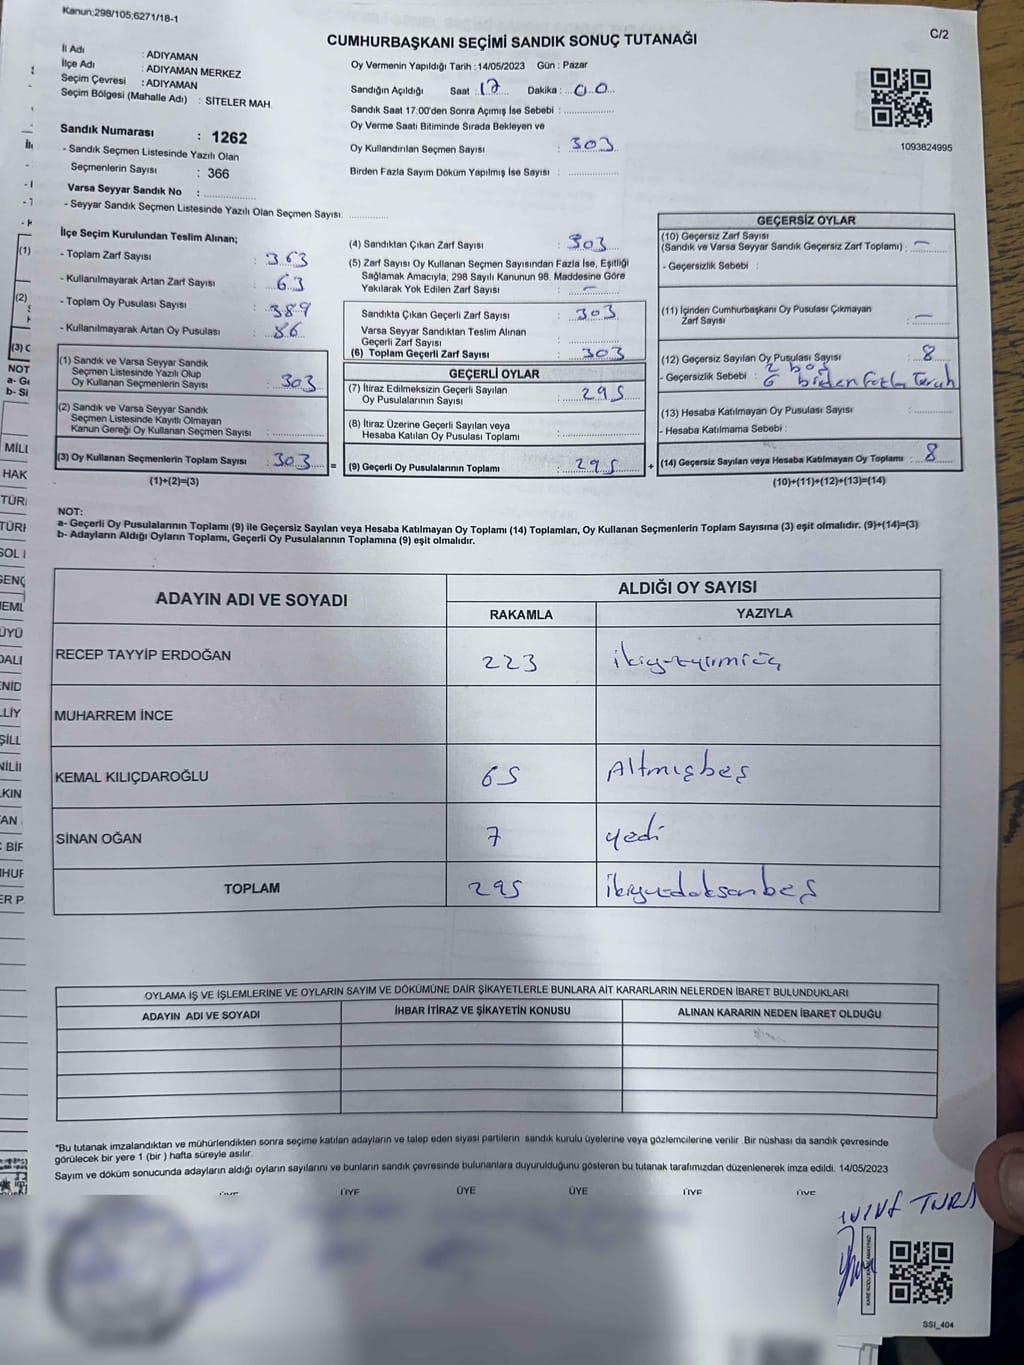 Kanun:298/105,6271/18-1
C/2
CUMHURBAŞKANI SEÇİMİ SANDIK SONUÇ TUTANAĞI
İl Adı : ADIYAMAN
İlçe Adı : ADIYAMAN MERKEZ
Seçim Çevresi : ADIYAMAN
Seçim Bölgesi (Mahalle Adı) : SİTELER MAH.
Sandık Numarası : 1262
- Sandık Seçmen Listesinde Yazılı Olan
Seçmenlerin Sayısı : 366
Varsa Seyyar Sandık No : ..............
- Seyyar Sandık Seçmen Listesinde Yazılı Olan Seçmen Sayısı: ............
Oy Vermenin Yapıldığı Tarih : 14/05/2023 Gün : Pazar
Sandığın Açıldığı Saat : 17 Dakika : 00
Sandık Saat 17:00'den Sonra Açımış İse Sebebi : ..............
Oy Verme Saati Bitiminde Sırada Bekleyen ve
Oy Kullandırılan Seçmen Sayısı : 303
Birden Fazla Sayım Döküm Yapılmış İse Sayısı : ..............
1093824995
İlçe Seçim Kurulundan Teslim Alınan;
- Toplam Zarf Sayısı : 363
- Kullanılmayarak Artan Zarf Sayısı : 63
- Toplam Oy Pusulası Sayısı : 389
- Kullanılmayarak Artan Oy Pusulası : 86
(1) Sandık ve Varsa Seyyar Sandık
Seçmen Listesinde Yazılı Olup
Oy Kullanan Seçmenlerin Sayısı : 303
(2) Sandık ve Varsa Seyyar Sandık
Seçmen Listesinde Kayıtlı Olmayan
Kanun Gereği Oy Kullanan Seçmen Sayısı : ..............
(3) Oy Kullanan Seçmenlerin Toplam Sayısı : 303 =
(1)+(2)=(3)
(4) Sandıktan Çıkan Zarf Sayısı : 303
(5) Zarf Sayısı Oy Kullanan Seçmen Sayısından Fazla İse, Eşitliği
Sağlamak Amacıyla; 298 Sayılı Kanunun 98. Maddesine Göre
Yakılarak Yok Edilen Zarf Sayısı : –
Sandıkta Çıkan Geçerli Zarf Sayısı : 303
Varsa Seyyar Sandıktan Teslim Alınan
Geçerli Zarf Sayısı : ..............
(6) Toplam Geçerli Zarf Sayısı : 303
GEÇERLİ OYLAR
(7) İtiraz Edilmeksizin Geçerli Sayılan
Oy Pusulalarının Sayısı : 295
(8) İtiraz Üzerine Geçerli Sayılan veya
Hesaba Katılan Oy Pusulası Toplamı : ..............
(9) Geçerli Oy Pusulalarının Toplamı : 295 +
GEÇERSİZ OYLAR
(10) Geçersiz Zarf Sayısı
(Sandık ve Varsa Seyyar Sandık Geçersiz Zarf Toplamı) : –
- Geçersizlik Sebebi :
(11) İçinden Cumhurbaşkanı Oy Pusulası Çıkmayan
Zarf Sayısı : –
(12) Geçersiz Sayılan Oy Pusulası Sayısı : 8
2 boş
- Geçersizlik Sebebi : 6 birden fazla Tercih
(13) Hesaba Katılmayan Oy Pusulası Sayısı : ..............
- Hesaba Katılmama Sebebi :
(14) Geçersiz Sayılan veya Hesaba Katılmayan Oy Toplamı : 8
(10)+(11)+(12)+(13)=(14)
NOT:
a- Geçerli Oy Pusulalarının Toplamı (9) ile Geçersiz Sayılan veya Hesaba Katılmayan Oy Toplamı (14) Toplamları, Oy Kullanan Seçmenlerin Toplam Sayısına (3) eşit olmalıdır. (9)+(14)=(3)
b- Adayların Aldığı Oyların Toplamı, Geçerli Oy Pusulalarının Toplamına (9) eşit olmalıdır.
ADAYIN ADI VE SOYADI ALDIĞI OY SAYISI
RAKAMLA YAZIYLA
RECEP TAYYİP ERDOĞAN 223 ikiyüzyirmiüç
MUHARREM İNCE
KEMAL KILIÇDAROĞLU 65 Altmışbeş
SİNAN OĞAN 7 yedi
TOPLAM 295 ikiyüzdoksanbeş
OYLAMA İŞ VE İŞLEMLERİNE VE OYLARIN SAYIM VE DÖKÜMÜNE DAİR ŞİKAYETLERLE BUNLARA AİT KARARLARIN NELERDEN İBARET BULUNDUKLARI
ADAYIN ADI VE SOYADI İHBAR İTİRAZ VE ŞİKAYETİN KONUSU ALINAN KARARIN NEDEN İBARET OLDUĞU
"Bu tutanak imzalandıktan ve mühürlendikten sonra seçime katılan adayların ve talep eden siyasi partilerin sandık kurulu üyelerine veya gözlemcilerine verilir .Bir nüshası da sandık çevresinde
görülecek bir yere 1 (bir ) hafta süreyle asılır.
Sayım ve döküm sonucunda adayların aldığı oyların sayılarını ve bunların sandık çevresinde bulunanlara duyurulduğunu gösteren bu tutanak tarafımızdan düzenlenerek imza edildi. 14/05/2023
ÜYE ÜYE ÜYE ÜYE ÜYE ÜYE
SSI_404